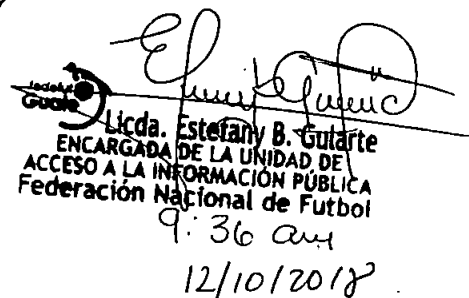 fedefut
Guate
Licda. Estefany B. Gularte
ENCARGADA DE LA UNIDAD DE
ACCESO A LA INFORMACIÓN PÚBLICA
Federación Nacional de Futbol
9:36 am
12/10/2018.